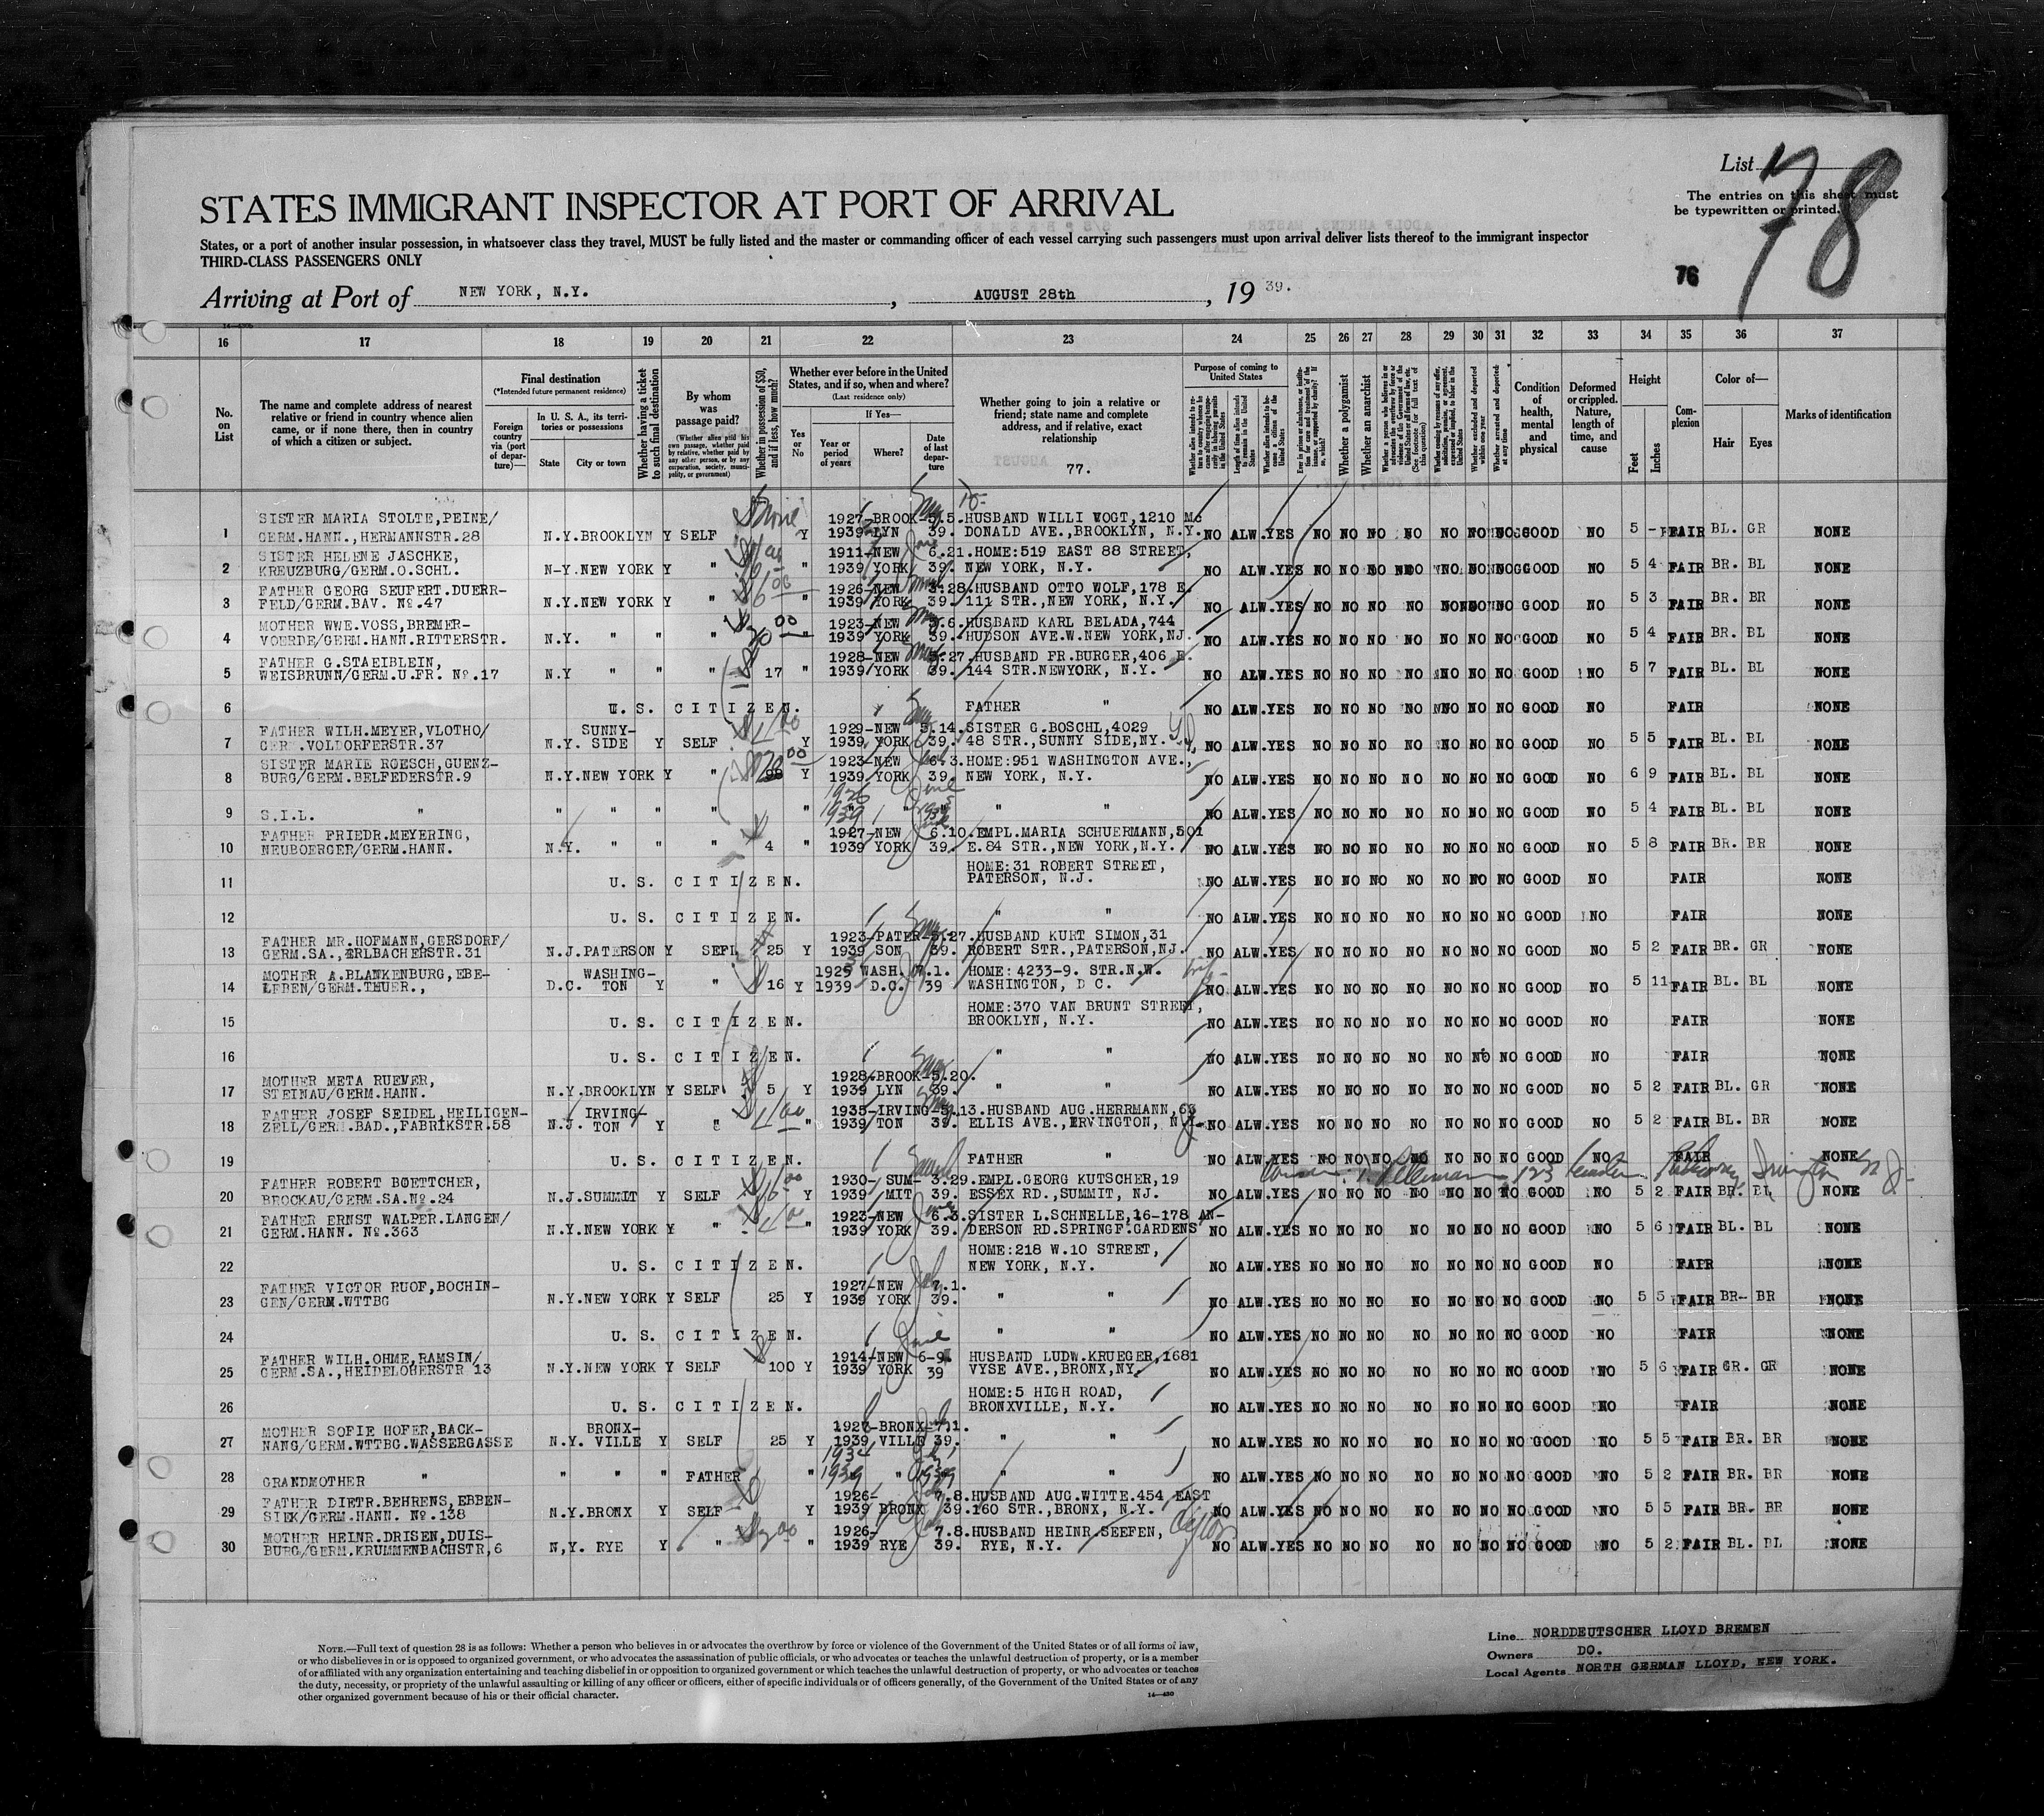 List
78
The entries on this sheet must
be typewritten or printed.
76
STATES IMMIGRANT INSPECTOR AT PORT OF ARRIVAL
States, or a port of another insular possession, in whatsoever class they travel, MUST be fully listed and the master or commanding officer of each vessel carrying such passengers must upon arrival deliver lists thereof to the immigrant inspector
THIRD-CLASS PASSENGERS ONLY
Arriving at Port of NEW YORK, N.Y. , AUGUST 28th , 19 39.
16 17 18 19 20 21 22 23 24 25 26 27 28 29 30 31 32 33 34 35 36 37
No. on List
The name and complete address of nearest relative or friend in country whence alien came, or if none there, then in country of which a citizen or subject.
Final destination
(*Intended future permanent residence)
Foreign country via (port of departure)—
In U. S. A., its territories or possessions
State City or town
Whether having a ticket to such final destination
By whom was passage paid?
(Whether alien paid his own passage, whether paid by relative, whether paid by any other person, or by any corporation, society, municipality, or government)
Whether in possession of $50, and if less, how much?
Whether ever before in the United States, and if so, when and where?
(Last residence only)
Yes or No
If Yes—
Year or period of years Where? Date of last departure
Whether going to join a relative or friend; state name and complete address, and if relative, exact relationship
77.
Purpose of coming to United States
Whether a polygamist
Whether an anarchist
Condition of health, mental and physical
Deformed or crippled. Nature, length of time, and cause
Height
Feet Inches
Complexion
Color of—
Hair Eyes
Marks of identification
SISTER MARIA STOLTE,PEINE/ 1927-BROOK-5.5.HUSBAND WILLI VOGT,1210 Mc
1 GERM.HANN.,HERMANNSTR.28 N.Y.BROOKLYN Y SELF None Y 1939 LYN 39. DONALD AVE.,BROOKLYN, N.Y. NO ALW.YES NO NO NO NO NO NO NO GOOD NO 5 - FAIR BL. GR NONE
SISTER HELENE JASCHKE, 1911-NEW 6.21.HOME:519 EAST 88 STREET,
2 KREUZBURG/GERM.O.SCHL. N-Y.NEW YORK Y " " 1939 YORK 39. NEW YORK, N.Y. NO ALW.YES NO NO NO NO NO NO NO GOOD NO 5 4 FAIR BR. BL NONE
FATHER GEORG SEUFERT.DUERR- 1926-NEW 3.28.HUSBAND OTTO WOLF,178 E.
3 FELD/GERM.BAV. No.47 N.Y.NEW YORK Y " " 1939 YORK 39. 111 STR.,NEW YORK, N.Y. NO ALW.YES NO NO NO NO NO NO NO GOOD NO 5 3 FAIR BR. BR NONE
MOTHER WWE.VOSS,BREMER- 1923-NEW 5.6.HUSBAND KARL BELADA,744
4 VOERDE/GERM.HANN.RITTERSTR. N.Y. " " " " 1939 YORK 39. HUDSON AVE.W.NEW YORK,NJ. NO ALW.YES NO NO NO NO NO NO NO GOOD NO 5 4 FAIR BR. BL NONE
FATHER G.STAEIBLEIN, 1928-NEW 5.27.HUSBAND FR.BURGER,406 E.
5 WEISBRUNN/GERM.U.FR. No.17 N.Y " " " 17 " 1939 YORK 39. 144 STR.NEWYORK, N.Y. NO ALW.YES NO NO NO NO NO NO NO GOOD NO 5 7 FAIR BL. BL NONE
6 U. S. CITIZEN. FATHER " NO ALW.YES NO NO NO NO NO NO NO GOOD NO FAIR NONE
FATHER WILH.MEYER,VLOTHO/ SUNNY- 1929-NEW 5.14.SISTER G.BOSCHL,4029
7 GERM.VOLDORFERSTR.37 N.Y. SIDE Y SELF Y 1939 YORK 39. 48 STR.,SUNNY SIDE,NY. NO ALW.YES NO NO NO NO NO NO NO GOOD NO 5 5 FAIR BL. BL NONE
SISTER MARIE ROESCH,GUENZ- 1923-NEW 6.3.HOME:951 WASHINGTON AVE.,
8 BURG/GERM.BELFEDERSTR.9 N.Y.NEW YORK Y " 98 Y 1939 YORK 39. NEW YORK, N.Y. NO ALW.YES NO NO NO NO NO NO NO GOOD NO 6 9 FAIR BL. BL NONE
1926 June
9 S.I.L. " " " " " " 1939 " 1939 " " NO ALW.YES NO NO NO NO NO NO NO GOOD NO 5 4 FAIR BL. BL NONE
FATHER FRIEDR.MEYERING, 1927-NEW 6.10.EMPL.MARIA SCHUERMANN,501
10 NEUBOERGER/GERM.HANN. N.Y. " " " 4 " 1939 YORK 39. E.84 STR.,NEW YORK,N.Y. NO ALW.YES NO NO NO NO NO NO NO GOOD NO 5 8 FAIR BR. BR NONE
HOME:31 ROBERT STREET,
11 U. S. CITIZEN. PATERSON, N.J. NO ALW.YES NO NO NO NO NO NO NO GOOD NO FAIR NONE
12 U. S. CITIZEN. " " NO ALW.YES NO NO NO NO NO NO NO GOOD NO FAIR NONE
FATHER MR.HOFMANN,GERSDORF/ 1923-PATER-5.27.HUSBAND KURT SIMON,31
13 GERM.SA.,ERLBACHERSTR.31 N.J.PATERSON Y SEFL 25 Y 1939 SON 39. ROBERT STR.,PATERSON,NJ. NO ALW.YES NO NO NO NO NO NO NO GOOD NO 5 2 FAIR BR. GR NONE
MOTHER A.BLANKENBURG,EBE- WASHING- 1925 WASH. 7.1. HOME:4233-9. STR.N.W.
14 LEBEN/GERM.THUER., D.C. TON Y " 16 Y 1939 D.C. 39 WASHINGTON, D C. NO ALW.YES NO NO NO NO NO NO NO GOOD NO 5 11 FAIR BL. BL NONE
HOME:370 VAN BRUNT STREET,
15 U. S. CITIZEN. BROOKLYN, N.Y. NO ALW.YES NO NO NO NO NO NO NO GOOD NO FAIR NONE
16 U. S. CITIZEN. " " NO ALW.YES NO NO NO NO NO NO NO GOOD NO FAIR NONE
MOTHER META RUEVER, 1928-BROOK-5.20.
17 STEINAU/GERM.HANN. N.Y.BROOKLYN Y SELF 5 Y 1939 LYN 39. " " NO ALW.YES NO NO NO NO NO NO NO GOOD NO 5 2 FAIR BL. GR NONE
FATHER JOSEF SEIDEL,HEILIGEN- IRVING- 1935-IRVING-5.13.HUSBAND AUG.HERRMANN,63
18 ZELL/GERM.BAD.,FABRIKSTR.58 N.J. TON Y " " 1939 TON 39. ELLIS AVE.,IRVINGTON, N.J. NO ALW.YES NO NO NO NO NO NO NO GOOD NO 5 2 FAIR BL. BR NONE
19 U. S. CITIZEN. FATHER " NO ALW.YES NO NO NO NO NO NO NO GOOD NO FAIR NONE
FATHER ROBERT BOETTCHER, 1930- SUM- 3.29.EMPL.GEORG KUTSCHER,19
20 BROCKAU/GERM.SA.No.24 N.J.SUMMIT Y SELF Y 1939 MIT 39. ESSEX RD.,SUMMIT, NJ. NO ALW.YES NO NO NO NO NO NO NO GOOD NO 5 2 FAIR BR. BL NONE
FATHER ERNST WALPER.LANGEN/ 1923-NEW 6.3.SISTER L.SCHNELLE,16-178 AN-
21 GERM.HANN. No.363 N.Y.NEW YORK Y " " 1939 YORK 39. DERSON RD.SPRINGF.GARDENS NO ALW.YES NO NO NO NO NO NO NO GOOD NO 5 6 FAIR BL. BL NONE
HOME:218 W.10 STREET,
22 U. S. CITIZEN. NEW YORK, N.Y. NO ALW.YES NO NO NO NO NO NO NO GOOD NO FAIR NONE
FATHER VICTOR RUOF,BOCHIN- 1927-NEW 7.1.
23 GEN/GERM.WTTBG N.Y.NEW YORK Y SELF 25 Y 1939 YORK 39. " " NO ALW.YES NO NO NO NO NO NO NO GOOD NO 5 5 FAIR BR- BR NONE
24 U. S. CITIZEN. " " NO ALW.YES NO NO NO NO NO NO NO GOOD NO FAIR NONE
FATHER WILH.OHME,RAMSIN/ 1914-NEW 6-9. HUSBAND LUDW.KRUEGER,1681
25 GERM.SA.,HEIDELOHERSTR 13 N.Y.NEW YORK Y SELF 100 Y 1939 YORK 39 VYSE AVE.,BRONX,NY. NO ALW.YES NO NO NO NO NO NO NO GOOD NO 5 6 FAIR GR. GR NONE
HOME:5 HIGH ROAD,
26 U. S. CITIZEN. BRONXVILLE, N.Y. NO ALW.YES NO NO NO NO NO NO NO GOOD NO FAIR NONE
MOTHER SOFIE HOFER,BACK- BRONX- 1927-BRONX-7.1.
27 NANG/GERM.WTTBG.WASSERGASSE N.Y. VILLE Y SELF 25 Y 1939 VILLE 39. " " NO ALW.YES NO NO NO NO NO NO NO GOOD NO 5 5 FAIR BR. BR NONE
1934
28 GRANDMOTHER " " " " FATHER " 1939 " 1939 " " NO ALW.YES NO NO NO NO NO NO NO GOOD NO 5 2 FAIR BR. BR NONE
FATHER DIETR.BEHRENS,EBBEN- 1926- 7.8.HUSBAND AUG.WITTE.454 EAST
29 SIEK/GERM.HANN. No.138 N.Y.BRONX Y SELF Y 1939 BRONX 39.160 STR.,BRONX, N.Y. NO ALW.YES NO NO NO NO NO NO NO GOOD NO 5 5 FAIR BR- BR NONE
MOTHER HEINR.DRISEN,DUIS- 1926- 7.8.HUSBAND HEINR.SEEFEN,
30 BURG/GERM.KRUMMENBACHSTR,6 N,Y. RYE Y " " 1939 RYE 39. RYE, N.Y. NO ALW.YES NO NO NO NO NO NO NO GOOD NO 5 2 FAIR BL. BL NONE
NOTE.—Full text of question 28 is as follows: Whether a person who believes in or advocates the overthrow by force or violence of the Government of the United States or of all forms of law,
or who disbelieves in or is opposed to organized government, or who advocates the assassination of public officials, or who advocates or teaches the unlawful destruction of property, or is a member
of or affiliated with any organization entertaining and teaching disbelief in or opposition to organized government or which teaches the unlawful destruction of property, or who advocates or teaches
the duty, necessity, or propriety of the unlawful assaulting or killing of any officer or officers, either of specific individuals or of officers generally, of the Government of the United States or of any
other organized government because of his or their official character.
14—430
Line NORDDEUTSCHER LLOYD BREMEN
Owners DO.
Local Agents NORTH GERMAN LLOYD, NEW YORK.